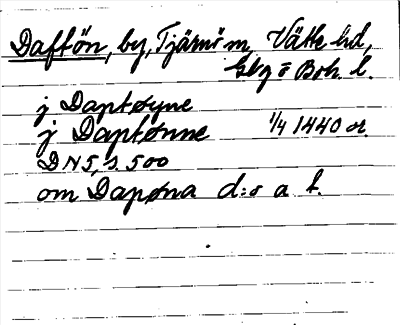 Daftön, by, Tjärnö sn, Vätte hd,
Gbg o Boh. l.
j Daptøyne
j Daptønne 1/4 1440 or.
DN 5, s. 500
om Dapøna d:o a l.